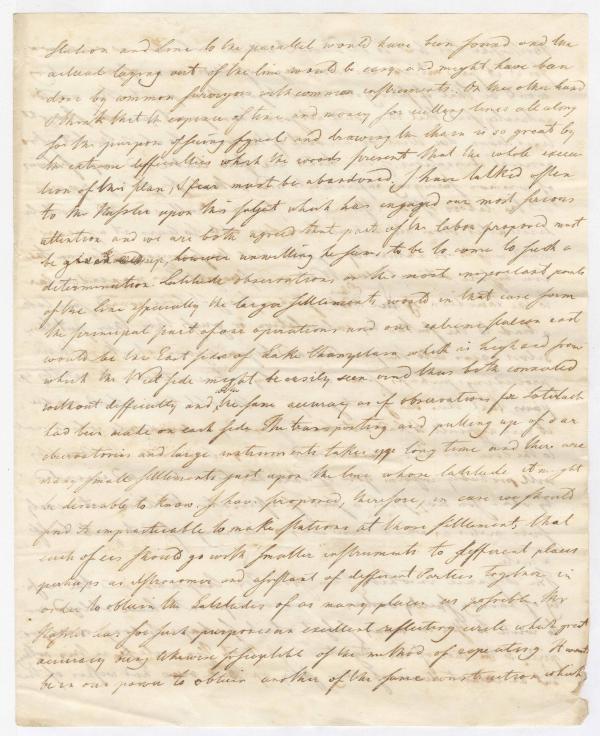 Station and Line to the parallel would have been found and the
actual laying out of the line would be easy and might have been
done by common surveyors with common instruments. On the other hand
I think that the expence of time and money for cutting lines all along
for the purpose of giving signals and drawing the chain is so great by
the extreme difficulties which the woods present that the whole execu-
tion of this plan, I fear must be abandoned. I have talked often
to Mr Hassler upon this subject which has engaged our most serious
attention and we are both agreed that part of the labor proposed must
be given up, however unwilling he seems, to be to come to such a
determination. Latitude observations on the most important points
of the line especially the larger settlements would in that case form
the principal part of our operations and our extreme station east
would be the East side of Lake Champlain which is high and from
which the West side might be easily seen and thus both connected
without difficulty and with the same accuracy as if observations for Latitude
had been made on each side. The transporting and putting up of our
observatories and large instruments takes up long time and there are
many small settlements just upon the line whose latitude it might
be desirable to know. I have proposed, therefore, in case we should
find it impracticable to make stations at those settlements, that
each of us should go with smaller instruments to different places
perhaps as astronomer and assistant of different Parties together in
order to obtain the Latitudes of as many places as possible. Mr
Hassler has for such purposes an excellent reflecting circle which great
accuracy being likewise susceptible of the method of repeating. It
be in our power to obtain another of the same construction which